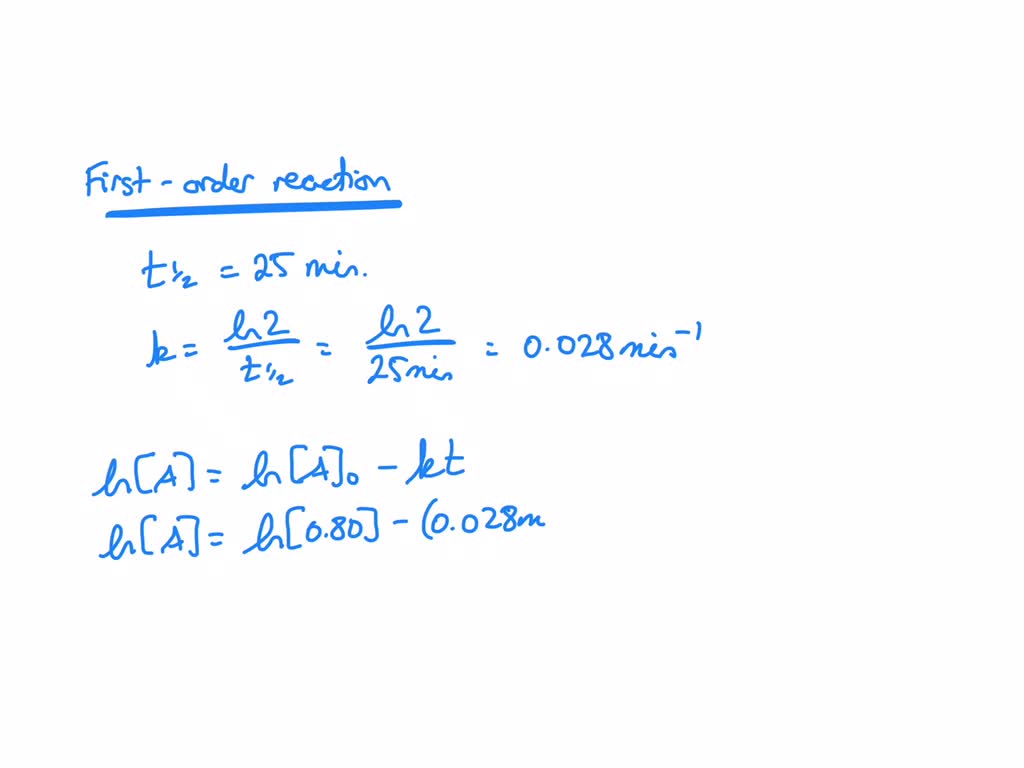 First-order reaction
t½ = 25 min.
k = ln2/t½ = ln2/25min = 0.028 min⁻¹
ln[A] = ln[A]₀ - kt
ln[A] = ln[0.80] - (0.028m